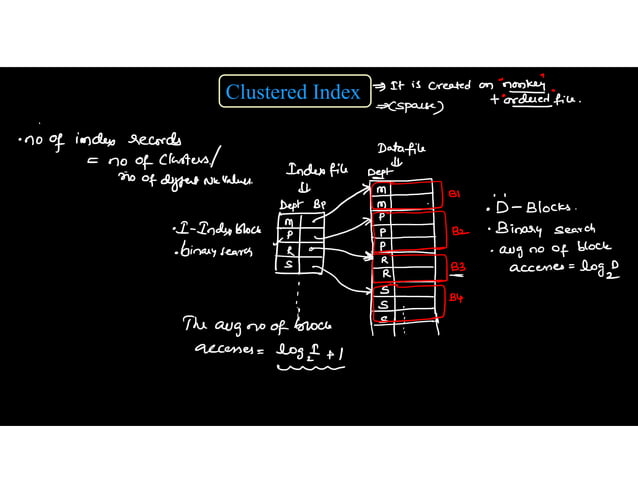 Clustered Index
⇒ It is created on "nonkey"
+ "ordered" file.
⇒ (sparse)
• no of index records
= no of clusters/
no of different NK values
Index file
⇓
Dept BP
M
P
R
S
• I - Index block
• binary search
The avg no of block
accesses = log₂I + 1
Data file
⇓
Dept
M
M
P
P
P
R
R
S
S
S
B1
B2
B3
B4
• D - Blocks.
• Binary search
• avg no of block
accesses = log₂D